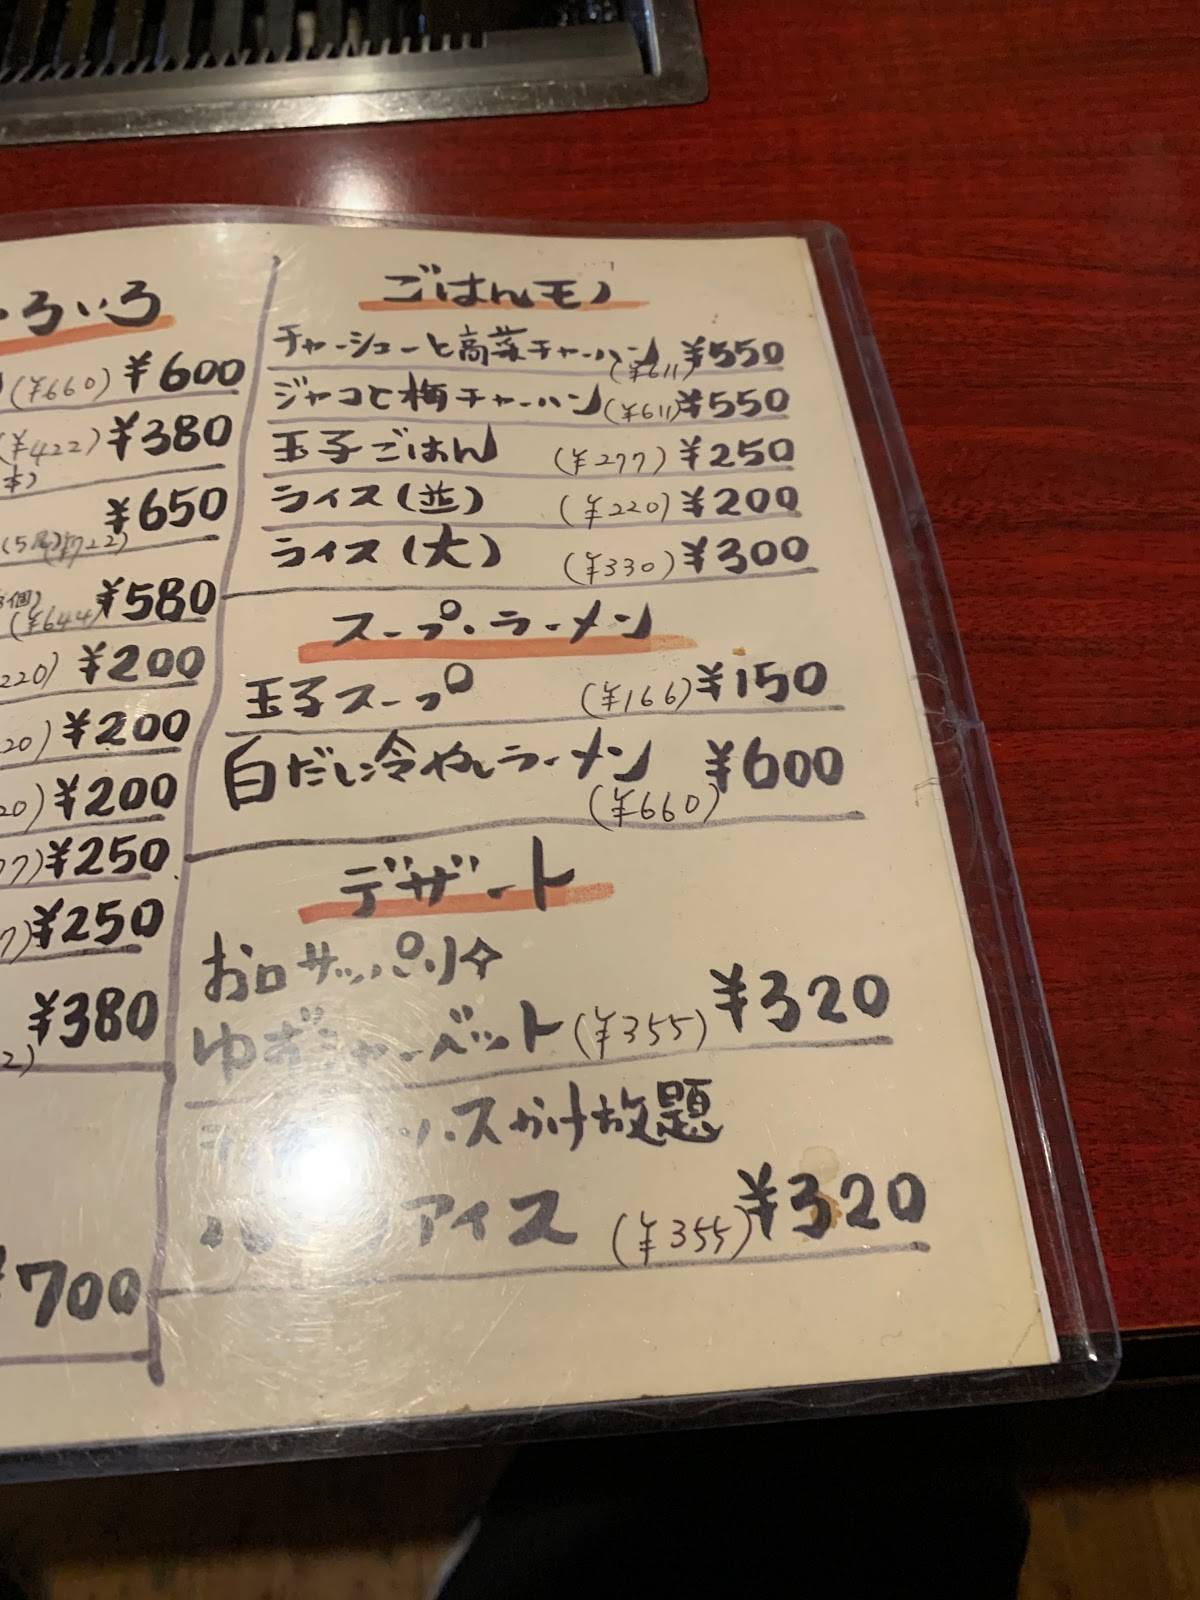 ろいろ
(¥660) ¥600
(¥422) ¥380
¥650
¥580
(¥644)
220) ¥200
20) ¥200
20) ¥200
7) ¥250
7) ¥250
¥380
2)
¥700
ごはんモノ
チャーシューと高菜チャーハン (¥611) ¥550
ジャコと梅チャーハン (¥611) ¥550
玉子ごはん (¥277) ¥250
ライス(並) (¥220) ¥200
ライス(大) (¥330) ¥300
スープ・ラーメン
玉子スープ (¥166) ¥150
白だし冷やしラーメン ¥600
(¥660)
デザート
お口サッパリ☆
ゆずシャーベット (¥355) ¥320
スかけ放題
アイス (¥355) ¥320